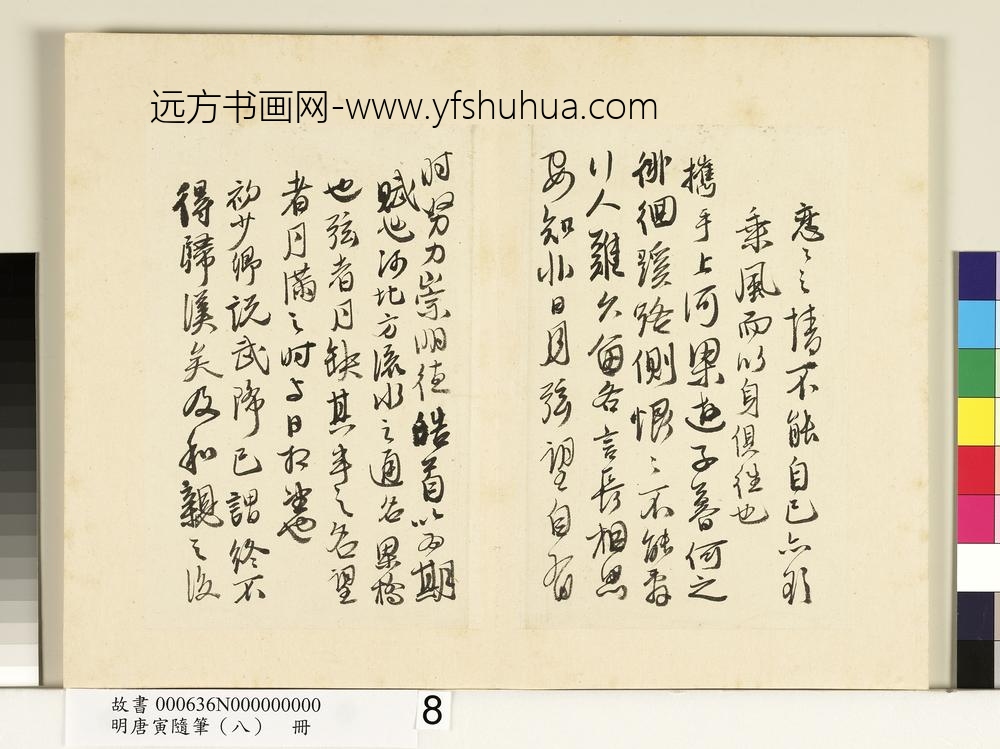 远方书画网-www.yfshuhua.com
恋〻之情不能自已亦欲
乘風而以身俱往也
攜手上河梁遊子暮何之
徘徊蹊路側恨〻不能辭
行人難久留各言長相思
安知非日月弦望自有
时努力崇明德皓首以为期
賦也河北方流水之通名梁橋
也弦者月缺其半之名望
者月滿之时与日相望也
初少卿说武降已謂終不
得歸漢矣及和親之後
故書 000636N000000000
明唐寅隨筆（八） 冊
8